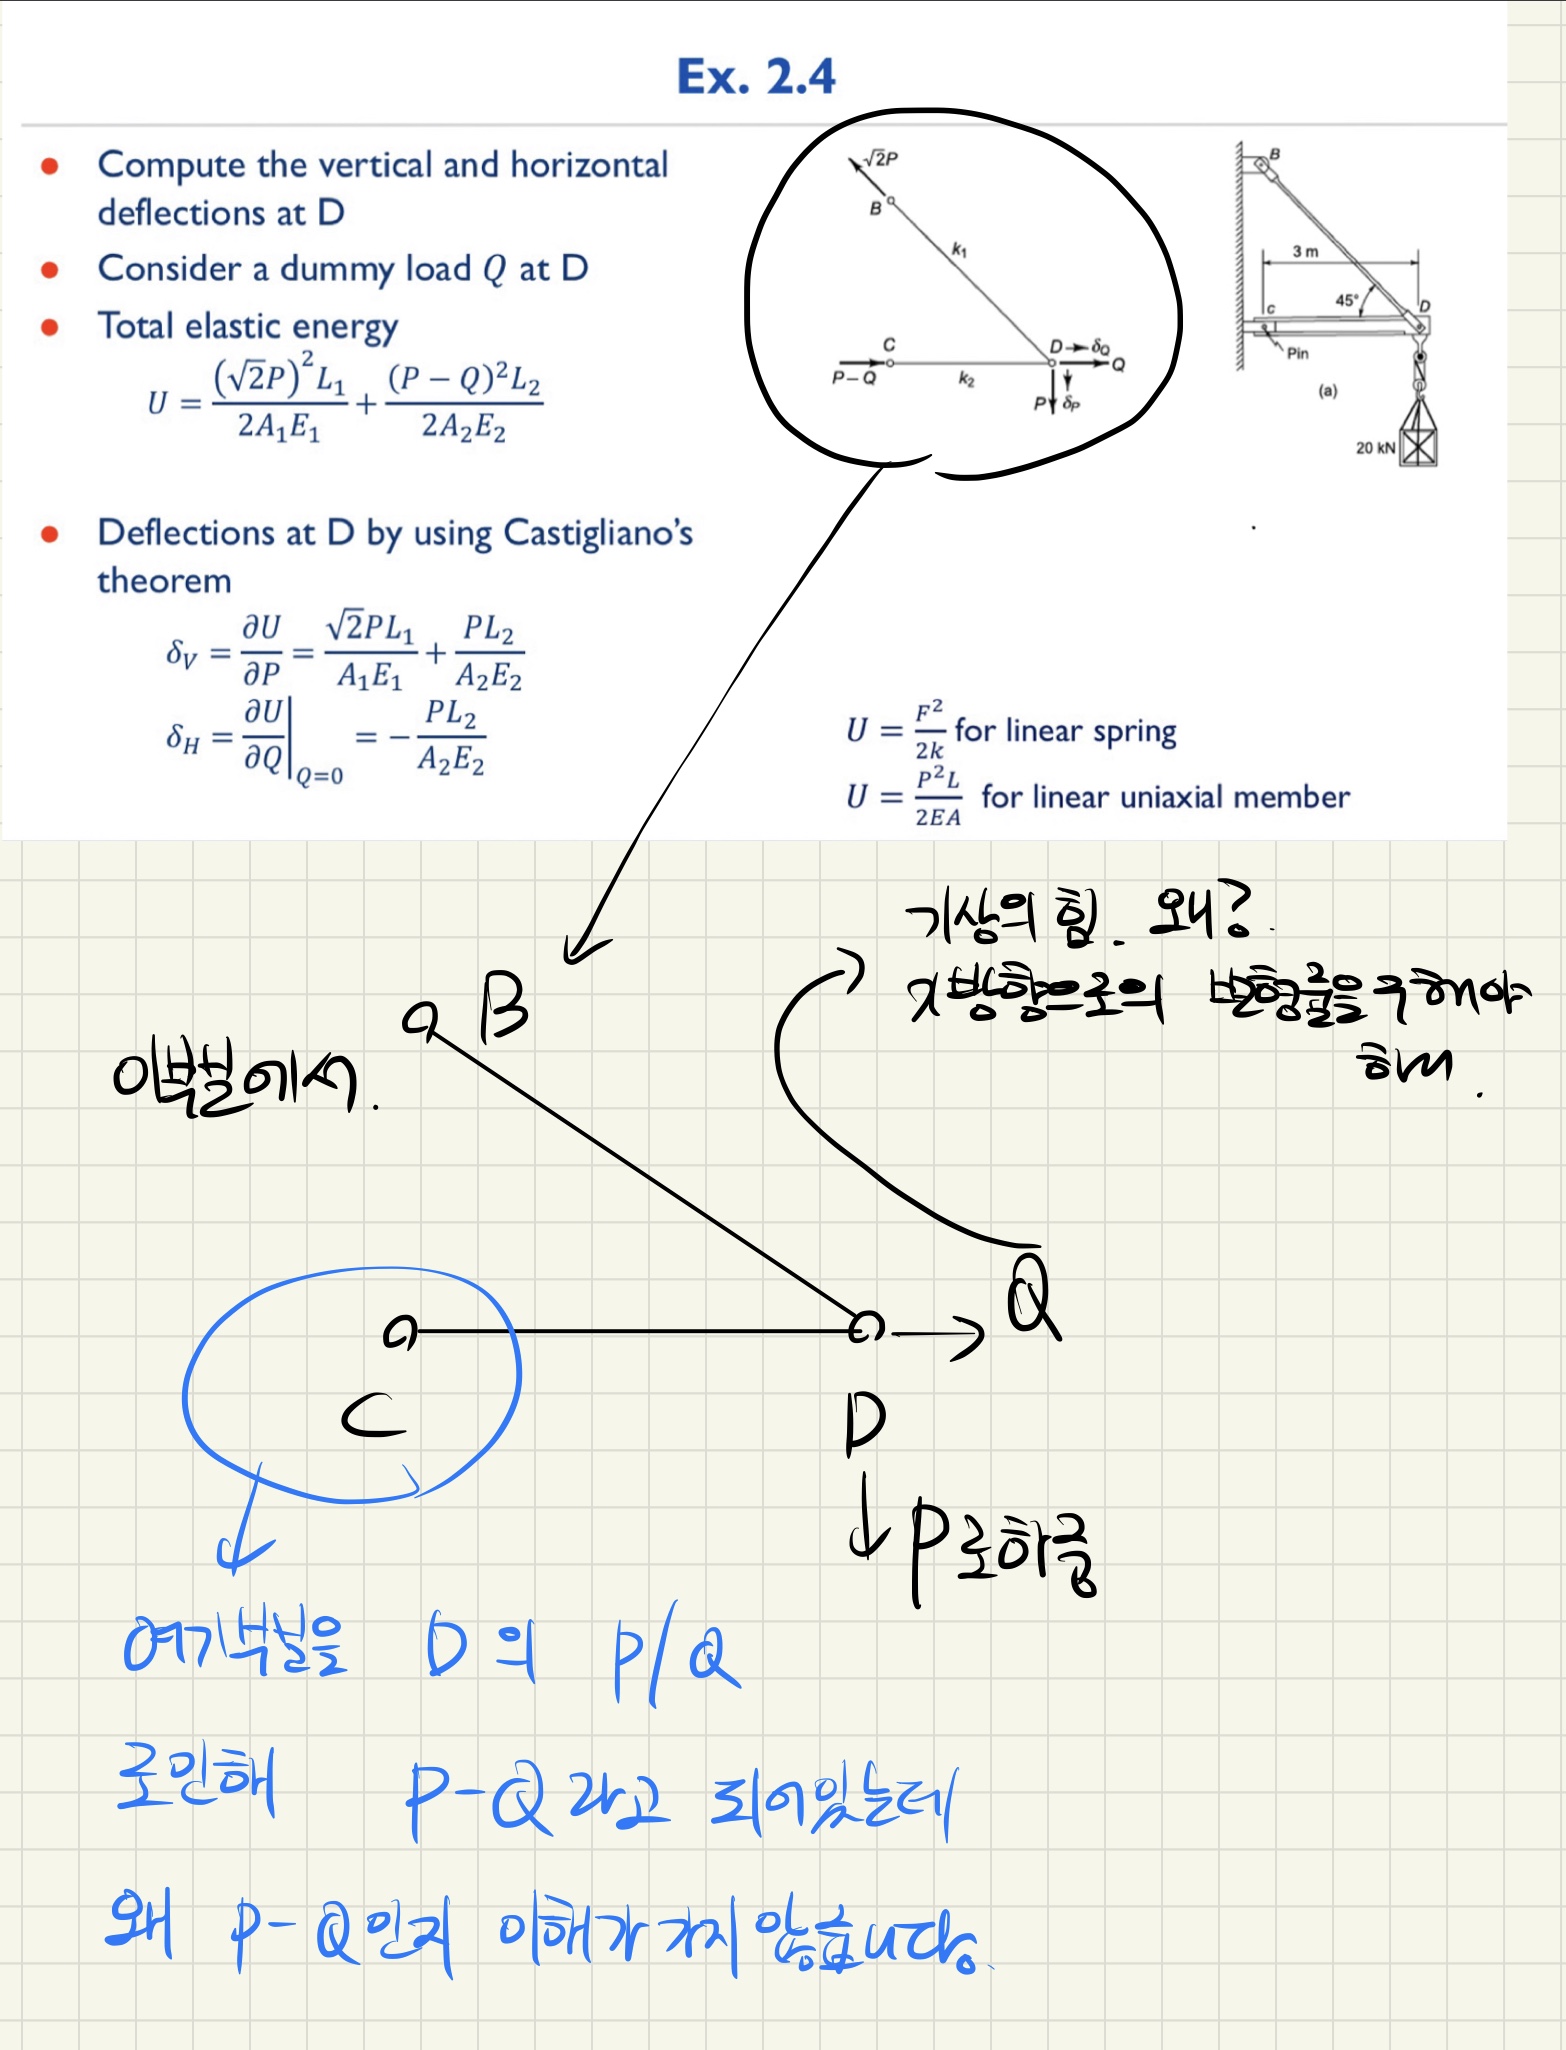 Ex. 2.4
• Compute the vertical and horizontal
deflections at D
• Consider a dummy load Q at D
• Total elastic energy
U = (√2P)²L₁ / 2A₁E₁ + (P − Q)²L₂ / 2A₂E₂
• Deflections at D by using Castigliano's
theorem
δ_V = ∂U/∂P = √2PL₁/A₁E₁ + PL₂/A₂E₂
δ_H = ∂U/∂Q |_Q=0 = − PL₂/A₂E₂
√2P
B
k₁
C
D → δ_Q
P−Q
k₂
Q
P
δ_P
B
3 m
45°
C
D
Pin
(a)
20 kN
U = F²/2k for linear spring
U = P²L/2EA for linear uniaxial member
가상의 힘. 왜?
x방향으로의 변형률을 구해야
하니.
B
이부분에서.
Q
C
D
P로하중
여기부분을 D의 P/Q
로인해 P-Q라고 되어있는데
왜 P-Q인지 이해가 가지 않습니다.